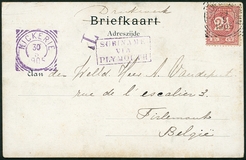 Drukwerk
Briefkaart
Adreszijde
NIKERIE
30
905
T
SURINAME
VIA
PLYMOUTH
2½
Aan den WelEd Heer A. Vandeput
rue de l'escalier 3.
Tirlemont
België